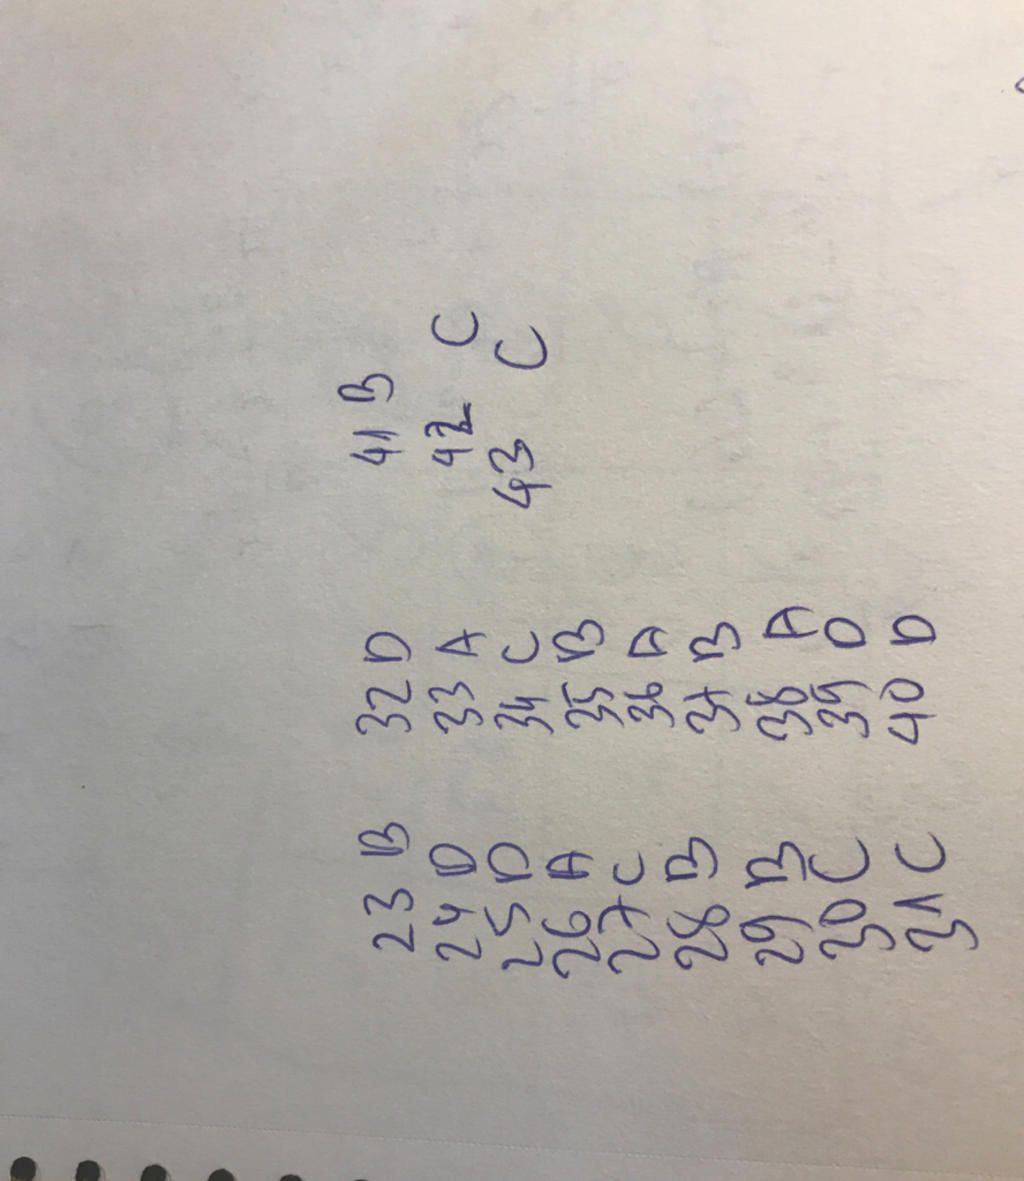 23 B
24 D
25 D
26 A
27 C
28 B
29 B
30 C
31 C
32 D
33 A
34 C
35 B
36 A
37 B
38 A
39 D
40 D
41 B
42 C
43 C